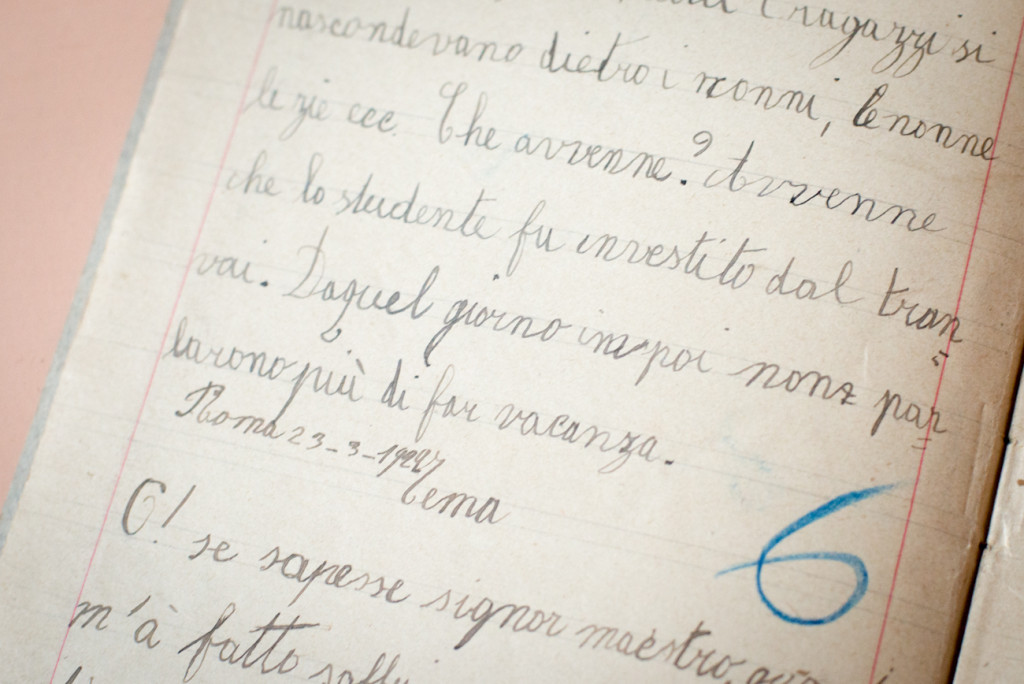 i ragazzi si
nascondevano dietro i nonni, le nonne
le zie ecc. Che avvenne? Avvenne
che lo studente fu investito dal tran=
vai. Daquel giorno im poi non par=
larono più di far vacanza.
Roma 23-3-1927
Tema
6
O! se sapesse signor maestro,
m'à fatto